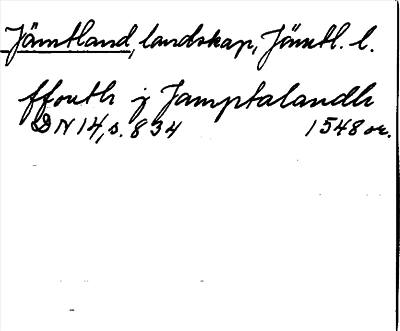 Jämtland, landskap, Jämtl. l.
ffouth j Jamptalandh
DN 14, s. 834 1548 or.